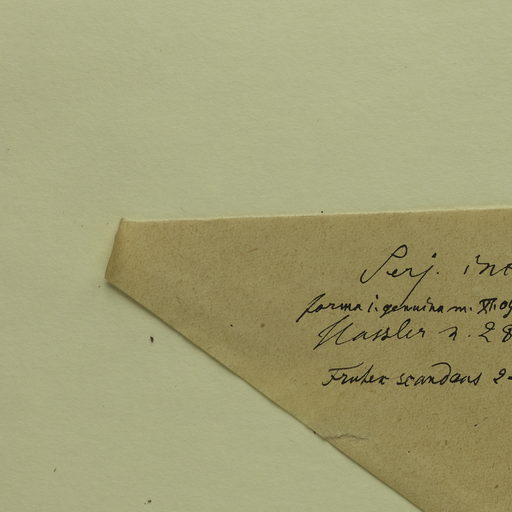 Serj. int
forma i. genuina m. XI. 09
Hassler n. 28
Frutex scandens 2-